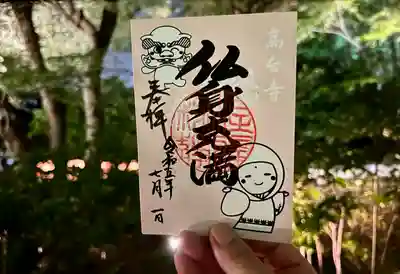 高台寺
仏身天満
奉拝
令和五年
七月一日